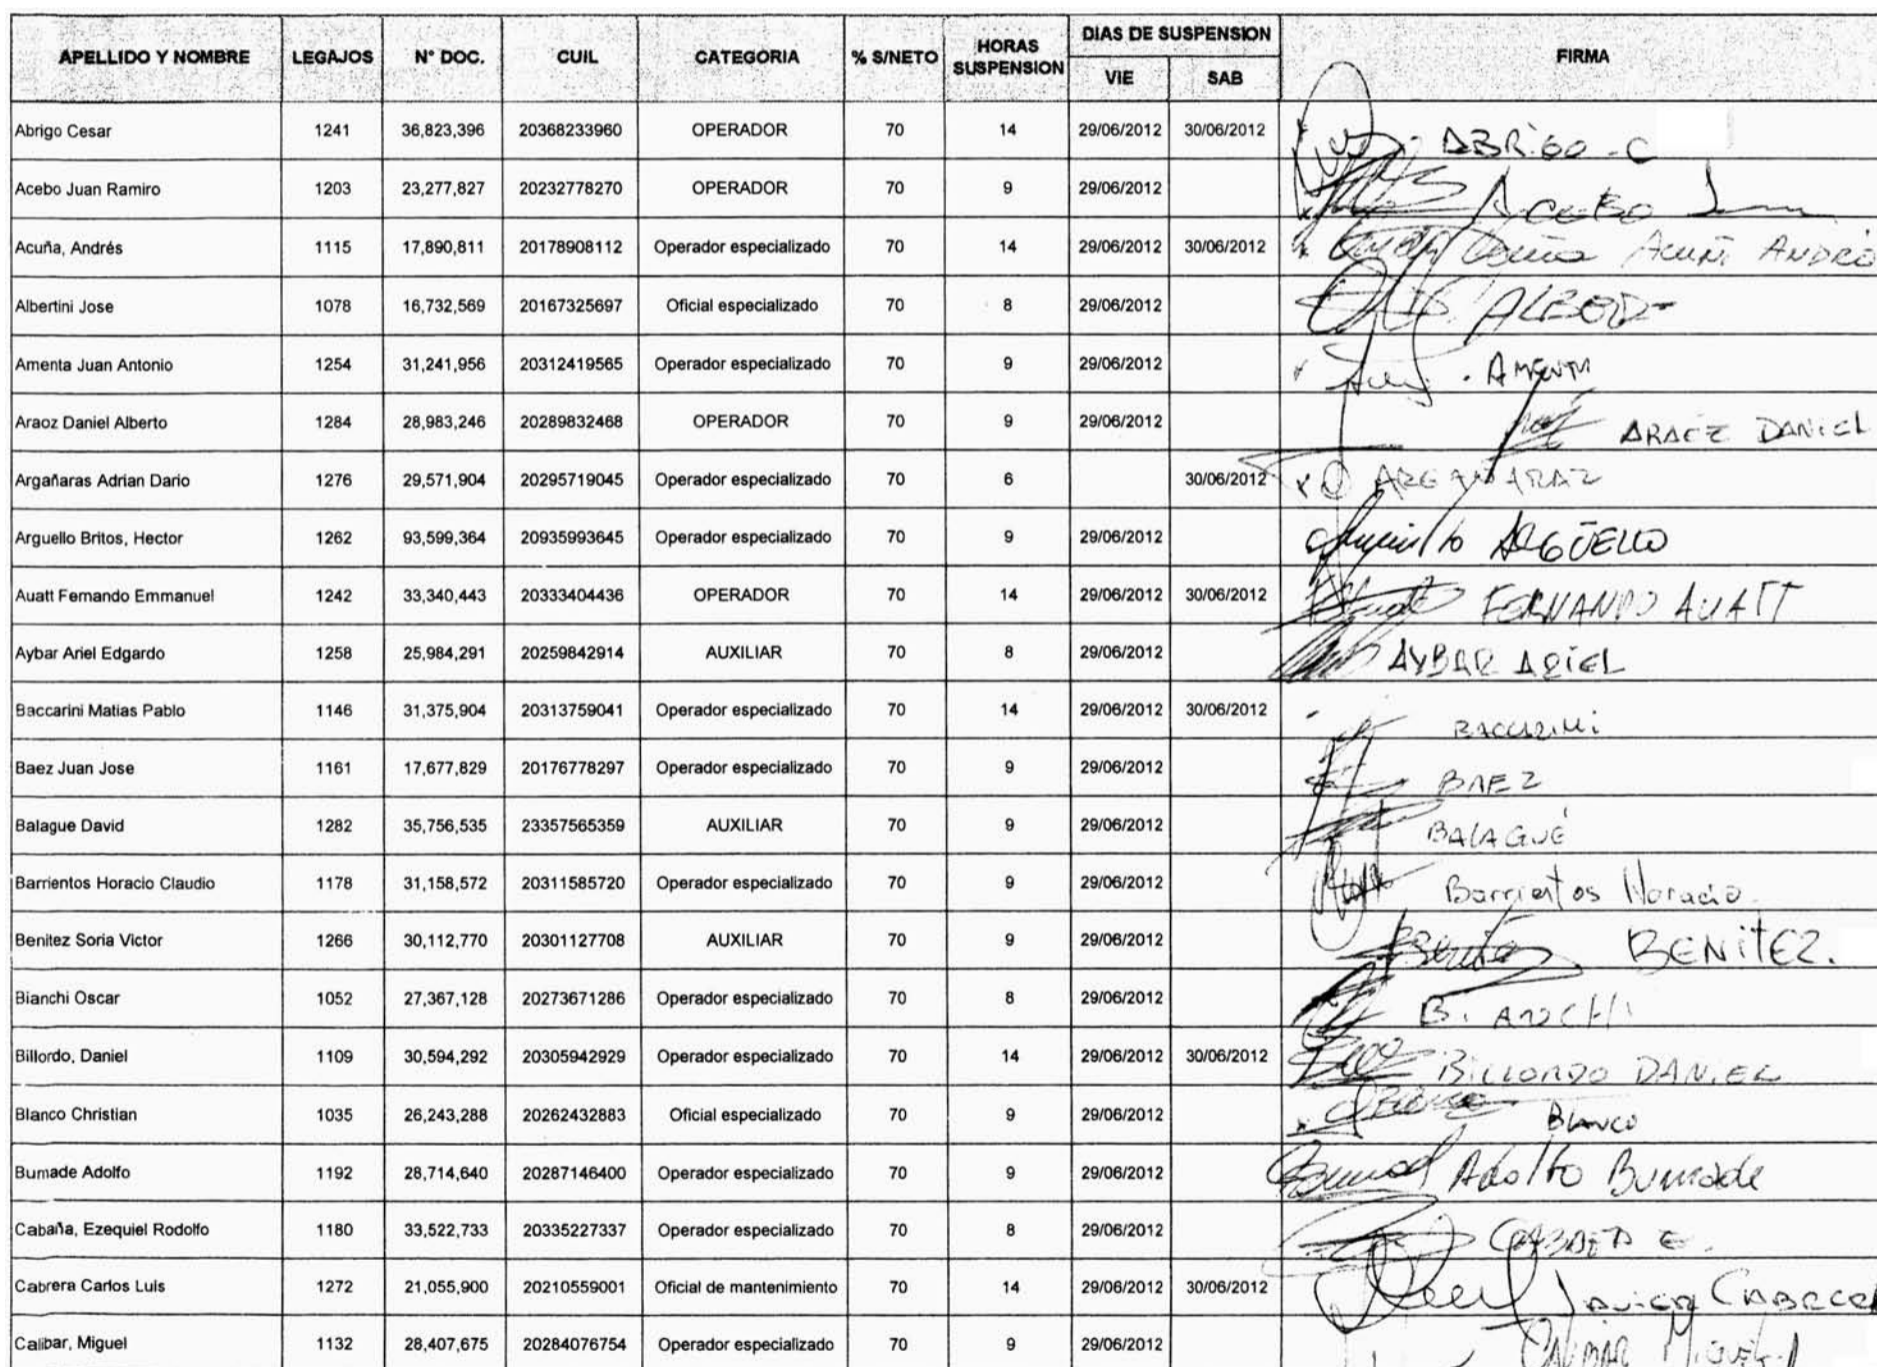 APELLIDO Y NOMBRE LEGAJOS N° DOC. CUIL CATEGORIA % S/NETO HORAS SUSPENSION DIAS DE SUSPENSION VIE SAB FIRMA
Abrigo Cesar 1241 36,823,396 20368233960 OPERADOR 70 14 29/06/2012 30/06/2012 ABRIGO - C
Acebo Juan Ramiro 1203 23,277,827 20232778270 OPERADOR 70 9 29/06/2012 ACEBO
Acuña, Andrés 1115 17,890,811 20178908112 Operador especializado 70 14 29/06/2012 30/06/2012
Albertini Jose 1078 16,732,569 20167325697 Oficial especializado 70 8 29/06/2012
Amenta Juan Antonio 1254 31,241,956 20312419565 Operador especializado 70 9 29/06/2012 AMENTA
Araoz Daniel Alberto 1284 28,983,246 20289832468 OPERADOR 70 9 29/06/2012 ARAEZ DANIEL
Argañaras Adrian Dario 1276 29,571,904 20295719045 Operador especializado 70 6 30/06/2012 ARGAÑARAZ
Arguello Britos, Hector 1262 93,599,364 20935993645 Operador especializado 70 9 29/06/2012 ARGÜELLO
Auatt Fernando Emmanuel 1242 33,340,443 20333404436 OPERADOR 70 14 29/06/2012 30/06/2012 FERNANDO AUATT
Aybar Ariel Edgardo 1258 25,984,291 20259842914 AUXILIAR 70 8 29/06/2012 AYBAR ARIEL
Baccarini Matias Pablo 1146 31,375,904 20313759041 Operador especializado 70 14 29/06/2012 30/06/2012 BACCARINI
Baez Juan Jose 1161 17,677,829 20176778297 Operador especializado 70 9 29/06/2012 BAEZ
Balague David 1282 35,756,535 23357565359 AUXILIAR 70 9 29/06/2012 BALAGUÉ
Barrientos Horacio Claudio 1178 31,158,572 20311585720 Operador especializado 70 9 29/06/2012 Barrientos Horacio
Benitez Soria Victor 1266 30,112,770 20301127708 AUXILIAR 70 9 29/06/2012 Benitez BENITEZ.
Bianchi Oscar 1052 27,367,128 20273671286 Operador especializado 70 8 29/06/2012 BIANCHI
Billordo, Daniel 1109 30,594,292 20305942929 Operador especializado 70 14 29/06/2012 30/06/2012 BILLORDO DANIEL
Blanco Christian 1035 26,243,288 20262432883 Oficial especializado 70 9 29/06/2012 BLANCO
Bumade Adolfo 1192 28,714,640 20287146400 Operador especializado 70 9 29/06/2012 Adolfo Bumade
Cabaña, Ezequiel Rodolfo 1180 33,522,733 20335227337 Operador especializado 70 8 29/06/2012
Cabrera Carlos Luis 1272 21,055,900 20210559001 Oficial de mantenimiento 70 14 29/06/2012 30/06/2012 JAVIER CABRERA
Calibar, Miguel 1132 28,407,675 20284076754 Operador especializado 70 9 29/06/2012 CALIBAR MIGUEL